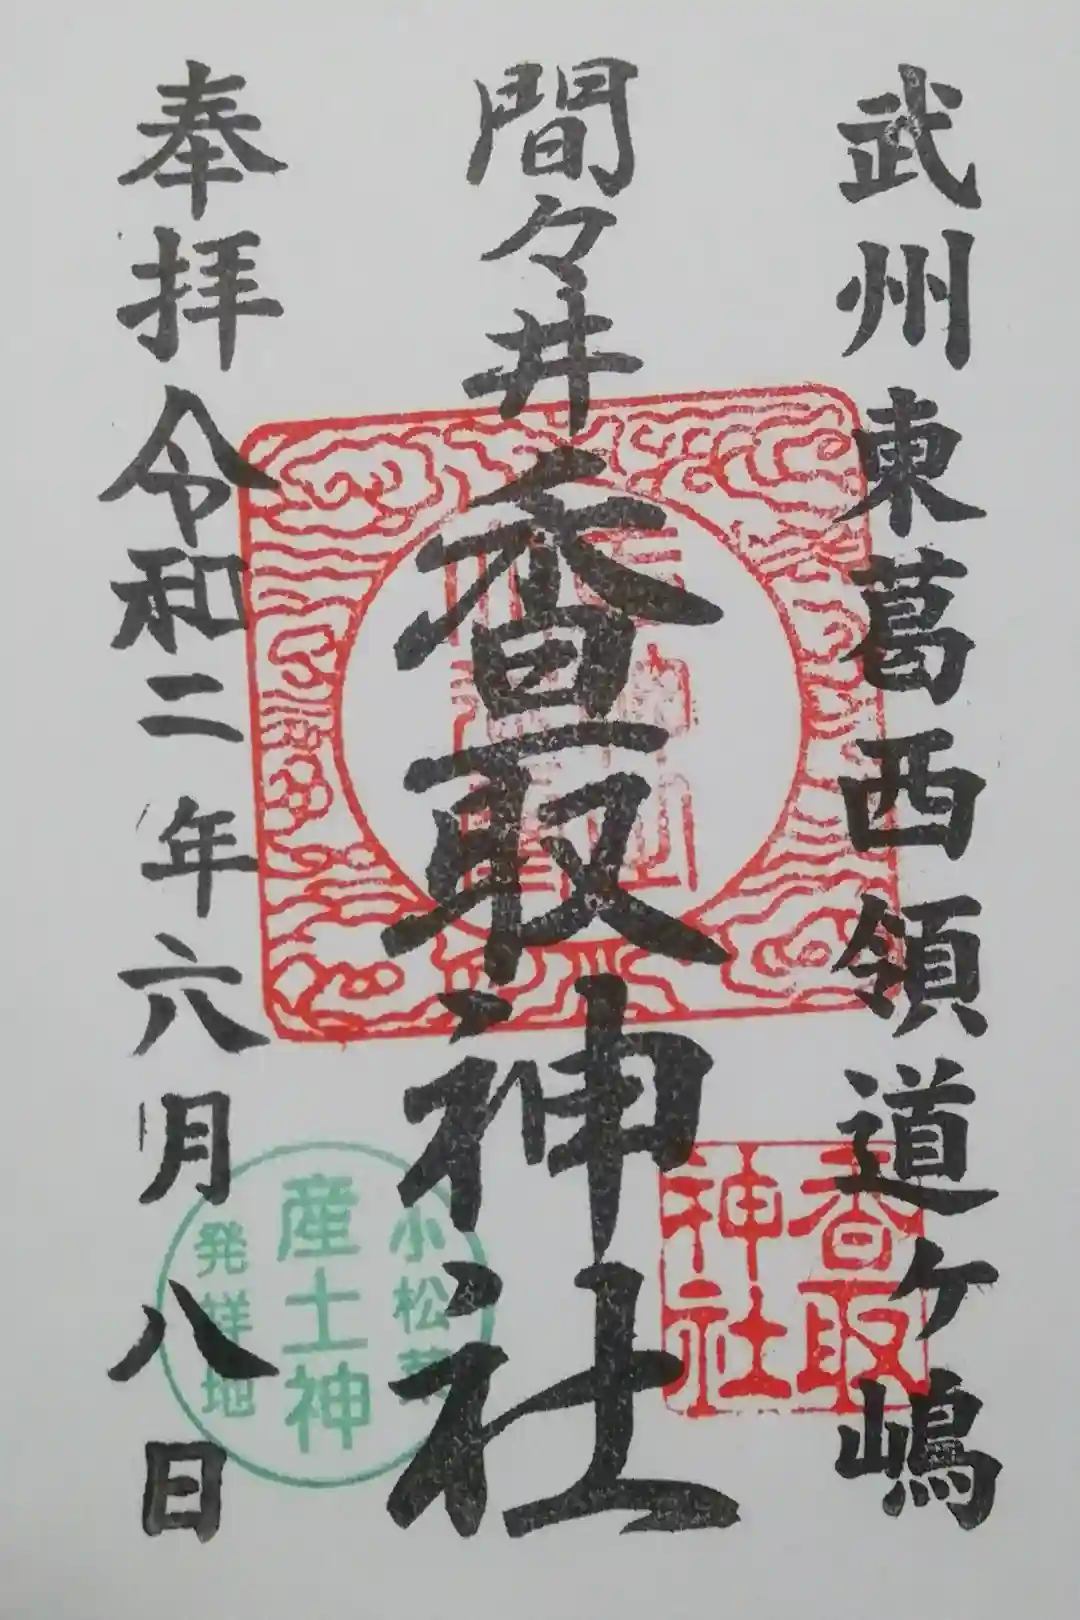 武州東葛西領道ケ嶋
間々井香取神社
奉拝令和二年六月八日
香取
神社
小松菜
産土神
発祥地